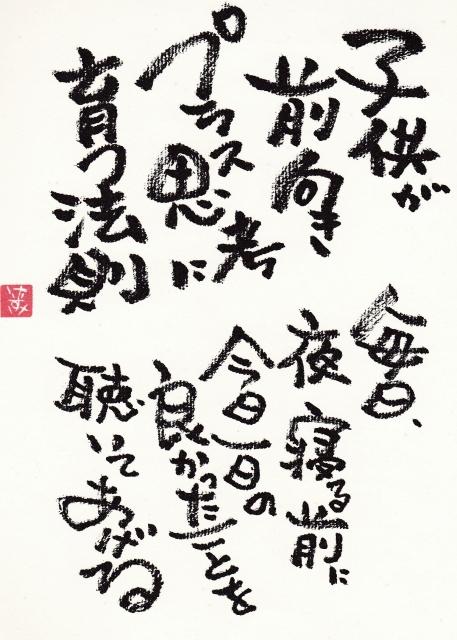 子供が
前向き
プラス思考に
育つ法則
毎日、
夜寝る前に
今日一日の
良かったことを
聴いてあげる